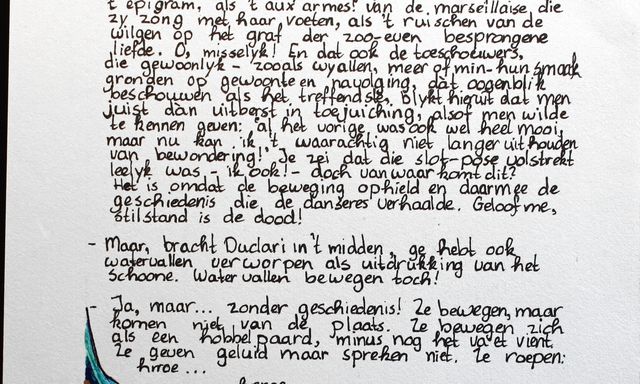 't epigram, als 't aux armes! van de marseillaise, die
zy zong met haar voeten, als 't ruischen van de
wilgen op het graf der zoo-even besprongene
liefde. O, misselyk! En dat ook de toeschouwers,
die gewoonlyk - zooals wy allen, meer of min - hun smaak
gronden op gewoonte en navolging, dat oogenblik
beschouwen als het treffendste, blykt hieruit dat men
juist dàn uitberst in toejuiching, alsof men wilde
te kennen geven: 'al het vorige was ook wel heel mooi,
maar nu kan ik 't waarachtig niet langer uithouden
van bewondering!' Je zei dat die slot-pose volstrekt
leelyk was - ik ook! - doch van waar komt dit?
Het is omdat de beweging ophield en daarmee de
geschiedenis die de danseres verhaalde. Geloof me,
stilstand is de dood!
- Maar, bracht Duclari in 't midden, ge hebt ook
watervallen verworpen als uitdrukking van het
schoone. Watervallen bewegen toch!
- Ja, maar... zonder geschiedenis! Ze bewegen, maar
komen niet van de plaats. Ze bewegen zich
als een hobbelpaard, minus nog het va et vient.
Ze geven geluid maar spreken niet. Ze roepen:
hrroe...